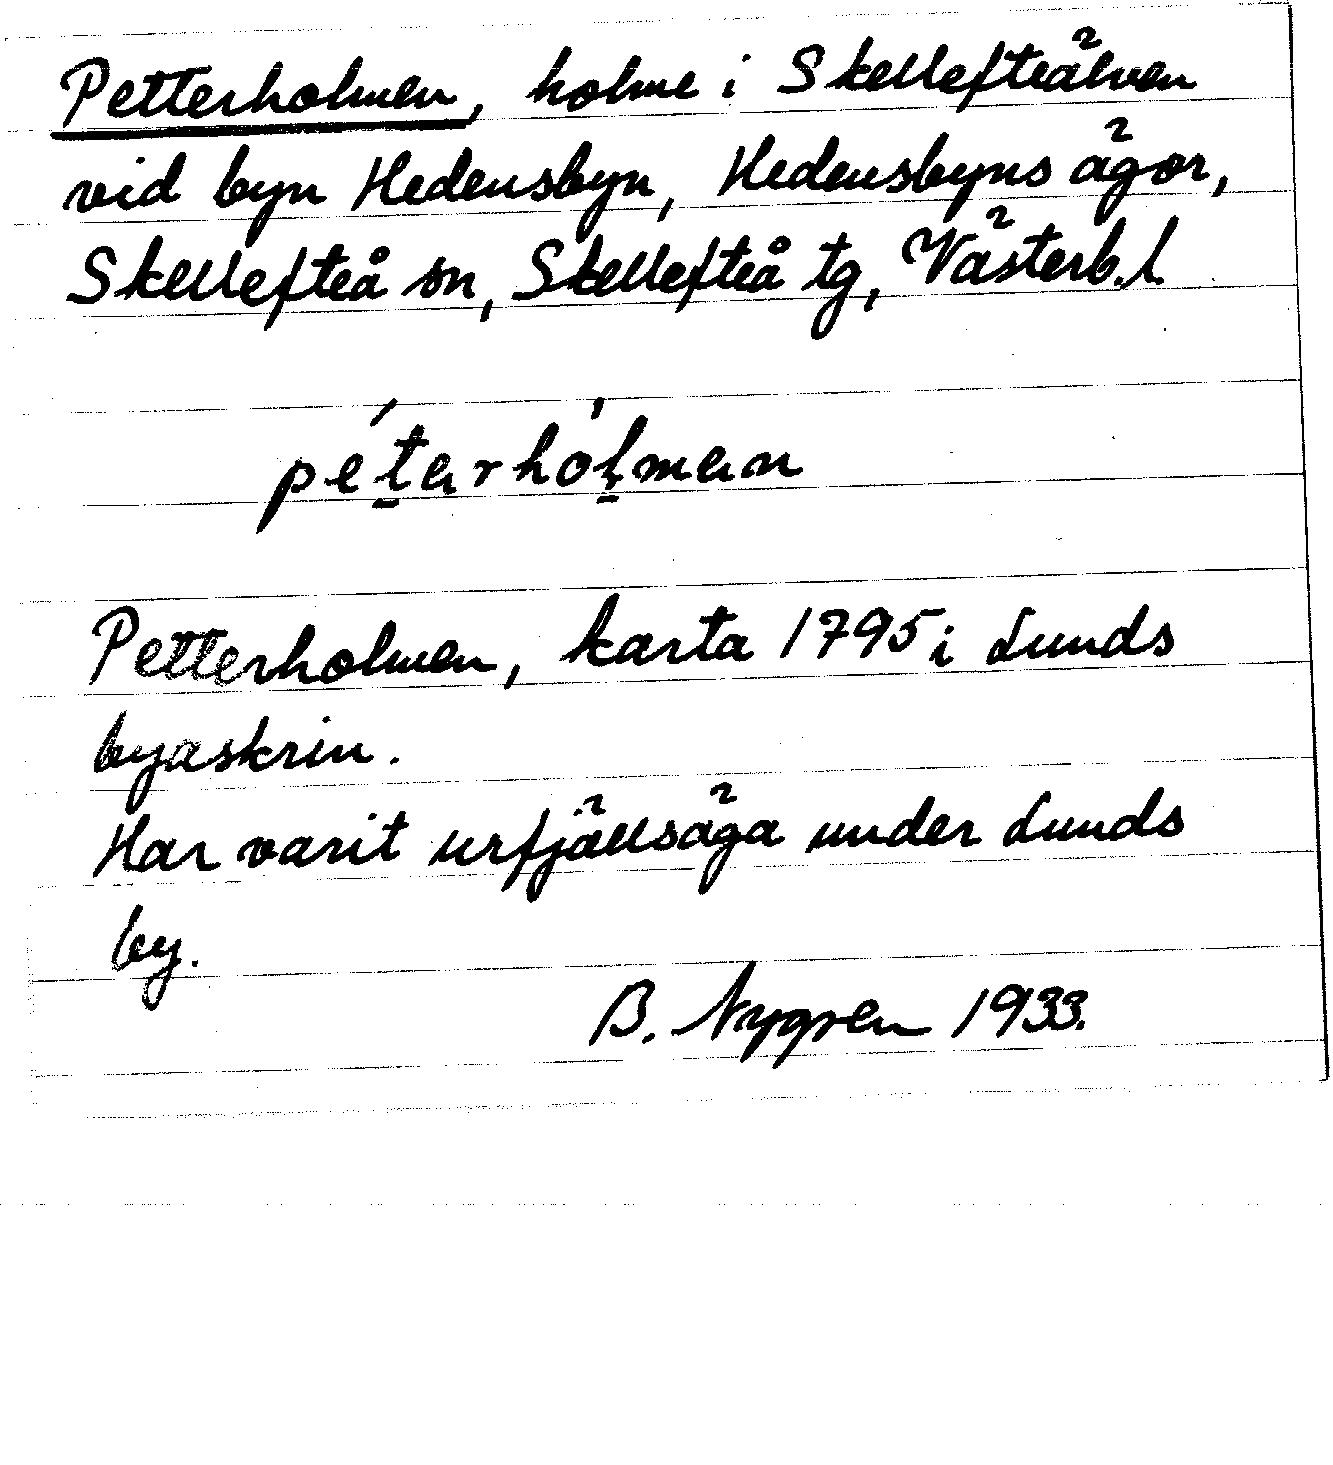 Petterholmen, holme i Skellefteälven
vid byn Hedensbyn, Hedensbyns ägor,
Skellefteå sn, Skellefteå tg, Västerb. l.
pétarhólmen
Petterholmen, karta 1795 i Lunds
byaskrin.
Har varit urfjällsäga under Lunds
by.
B. Nygren 1933.